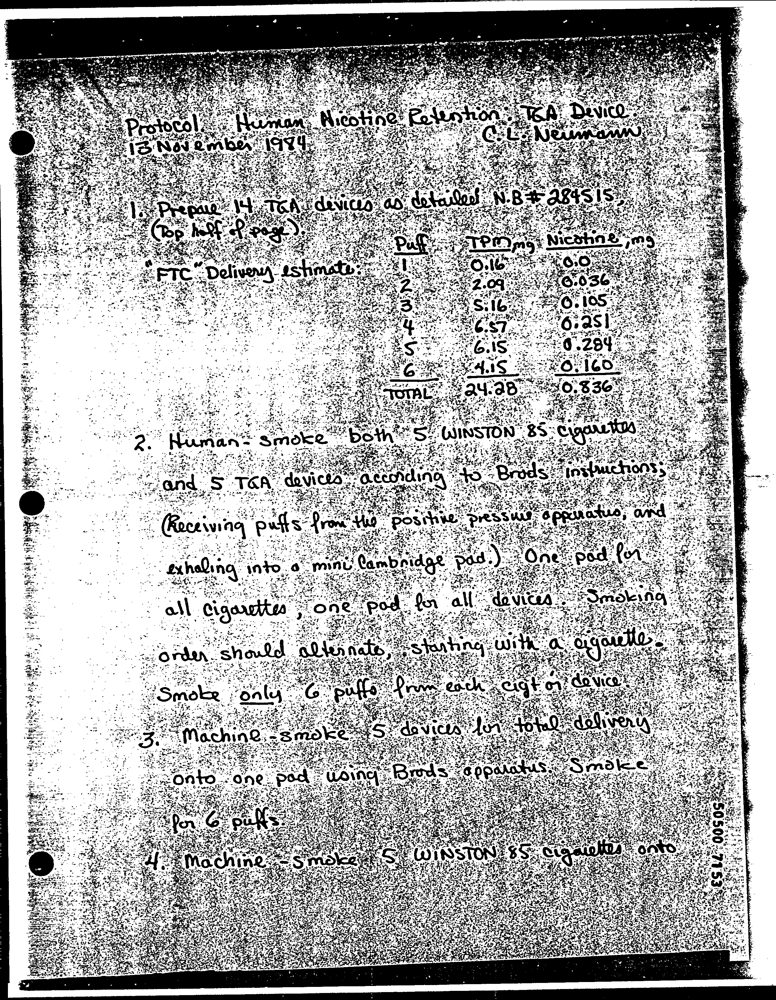 Protocol. Human Nicotine Retention: TGA Device
13 November 1984. C.L. Neumann
1. Prepare 14 TGA devices as detailed N.B# 284515,
(Top half of page).
Puff TPM, mg Nicotine, mg
"FTC" Delivery estimate: 1 0.16 0.0
2 2.09 0.036
3 5.16 0.105
4 6.57 0.251
5 6.15 0.284
6 4.15 0.160
TOTAL 24.28 0.836
2. Human-smoke both 5 WINSTON 85 cigarettes
and 5 TGA devices according to Brods instructions;
(Receiving puffs from the positive pressure apparatus, and
exhaling into a mini Cambridge pad.) One pad for
all cigarettes, one pad for all devices. Smoking
order should alternate, starting with a cigarette.
Smoke only 6 puffs from each cigt or device.
3. Machine-smoke 5 devices for total delivery
onto one pad using Brods apparatus. Smoke
for 6 puffs.
4. Machine-smoke 5 WINSTON 85 cigarettes onto
50500 7153